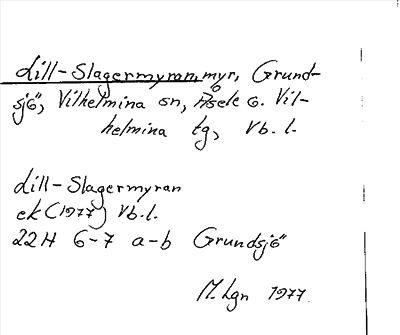 Lill-Slagermyran, myr, Grund-
sjö, Vilhelmina sn, Åsele o. Vil-
helmina tg, Vb. l.
Lill-Slagermyran
ek (1977) Vb. l.
22H 6-7 a-b Grundsjö
M. Lgn 1977.